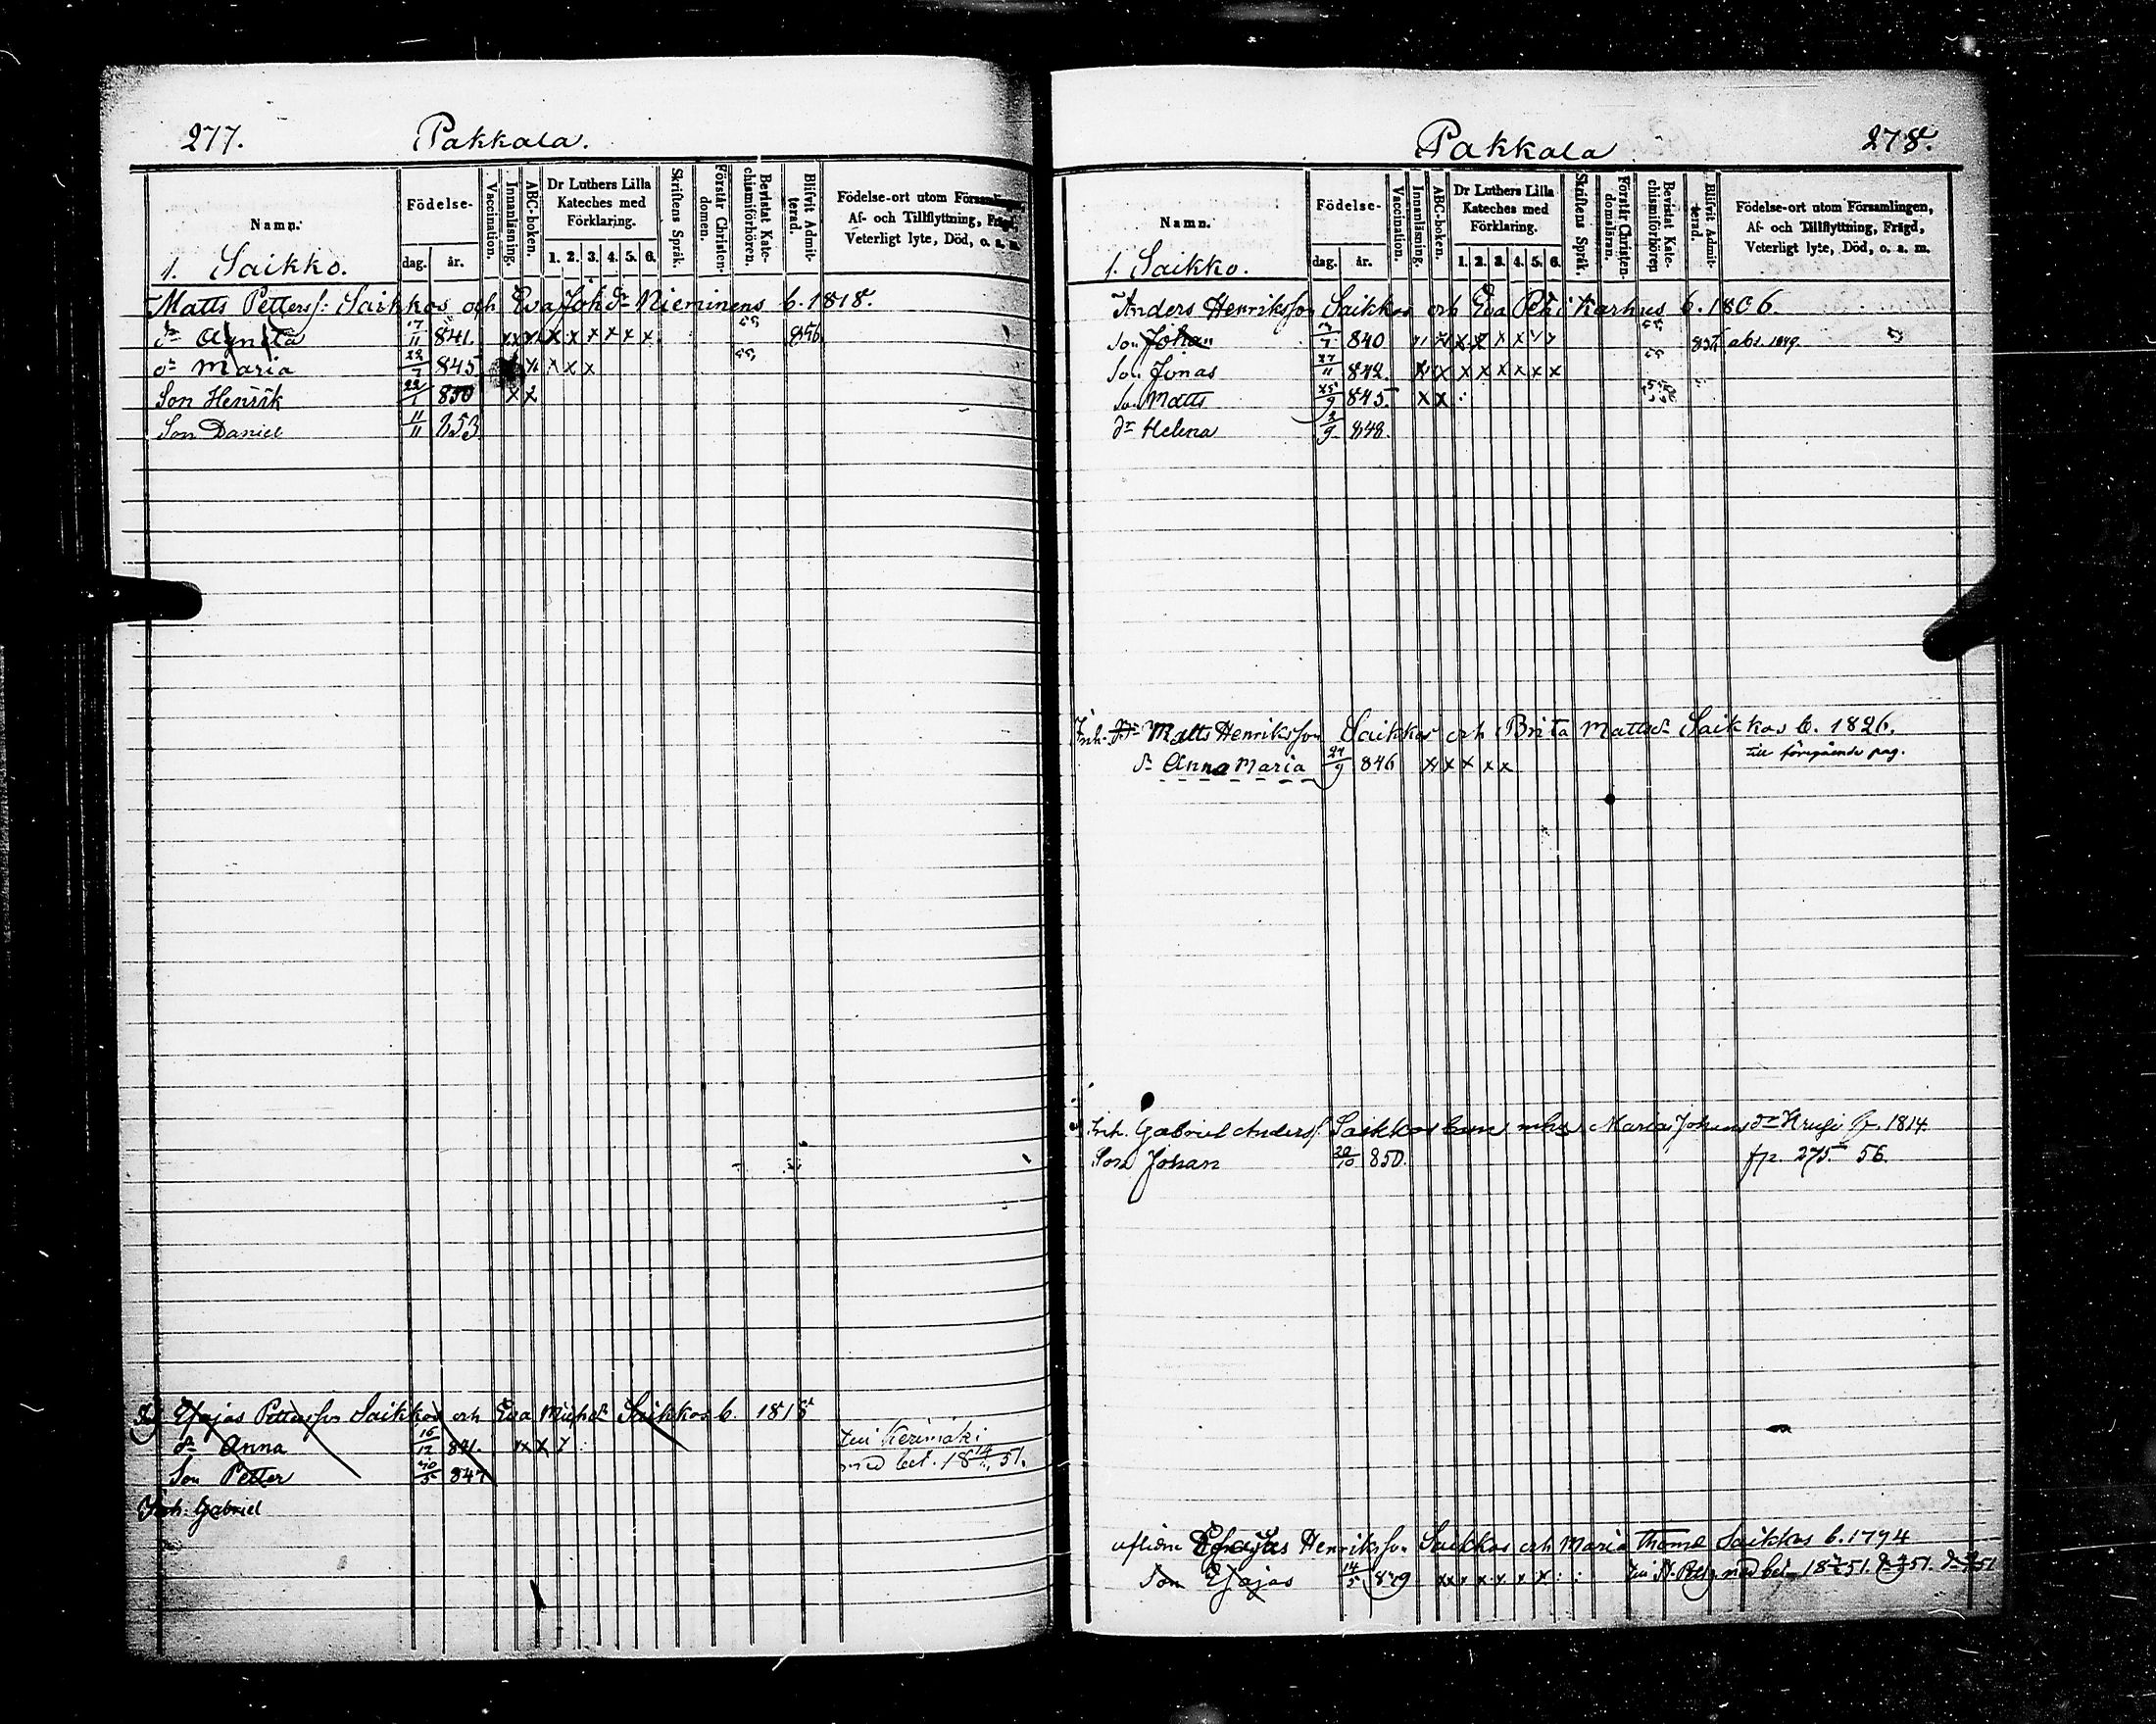 277. Pakkala.
Namn. Födelse- dag. år. Vaccination. Innanläsning. ABC-boken. Dr Luthers Lilla Kateches med Förklaring. 1. 2. 3. 4. 5. 6. Skriftens Språk. Förstår Christendomen. Bevistat Katechismiförhören. Blifvit Admitterad. Födelse-ort utom Församlingen, Af- och Tillflyttning, Frägd, Veterligt lyte, Död, o. s. m.
1. Saikko.
Matts Petterss: Saikkos och Eva Joh dr Nieminens b. 1818.
dr Agnita 17/11 841. x x x x x x x x 55 856
dr Maria 22/7 845. x x x x 55
Son Henrik 22/1 850 x x
Son Daniel 11/11 853
Esajas Pettersson Saikkos och Eva Mich dr Saikkos b. 1818
dr Anna 16/12 841. x x
Son Petter 5 847
till Kerimäki
med bet. 18 51.
Inh. Gabriel
Pakkala 278.
Namn. Födelse- dag. år. Vaccination. Innanläsning. ABC-boken. Dr Luthers Lilla Kateches med Förklaring. 1. 2. 3. 4. 5. 6. Skriftens Språk. Förstår Christendomsläran. Bevistat Katechismiförhören Blifvit Admitterad. Födelse-ort utom Församlingen, Af- och Tillflyttning, Frägd, Veterligt lyte, Död, o. s. m.
1. Saikko.
Anders Henriksson Saikkos och Eva Karhus b. 1806.
Son Johan 7 840 x x x x 55 857
Son Jonas 27/11 842. x x x x x x x x 55
Son Matts 25/9 845. x x
dr Helena 2/9 848.
Inh. Matts Henriksson Saikkos och Brita Matts dr Saikkos b. 1826.
dr Anna Maria 24/9 846 x x x x x till föregående pag.
Inh. Gabriel Anderss: Saikkos Maria Johans dr 1814.
Son Johan 20/10 850. fr. 275 56.
aflidne Esajas Henriksson Saikkos och Maria Thoms d Saikkos b. 1794
Son Esajas 14/5 829 x x x x x x x